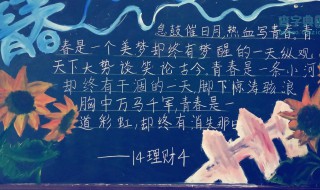 青春
急鼓催日月,热血写青春,青
春是一个美梦却终有梦醒的一天纵观
天下大势谈笑论古今.青春是一条小河
却终有干涸的一天.脚下惊涛骇浪
胸中万马千军,青春是一
道彩虹,却终有消失那
——14理财4